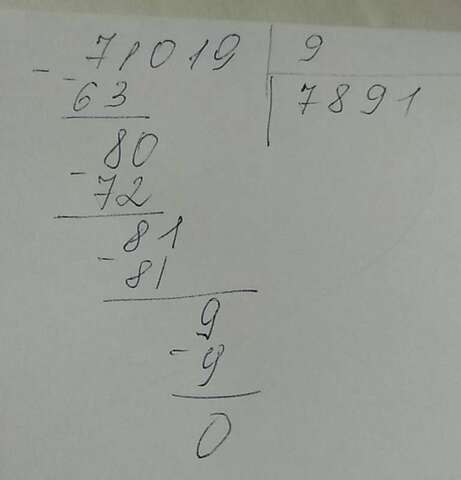 71019 9
- -
63 7891
80
-
72
81
-
81
9
-
9
0